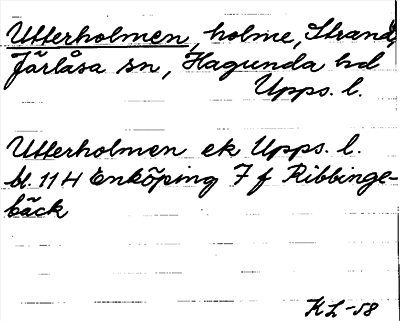 Utterholmen, holme, Strand,
Järlåsa sn, Hagunda hd
Upps. l.
Utterholmen ek Upps. l.
bl. 11 H Enköping 7 f Ribbinge-
bäck
KL-58